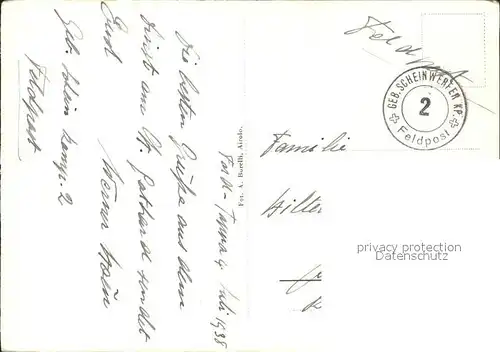 Feldpost
GEB. SCHEINWERFER KP.
2
Feldpost
Familie
privacy protection
Datenschutz
Fot. A. Borelli, Airolo.
Juli 1938
Die besten Grüße aus dem
Dienst am St. Gotthard sendet
Euch
Werner
Geb. Schein Komp. 2
Feldpost